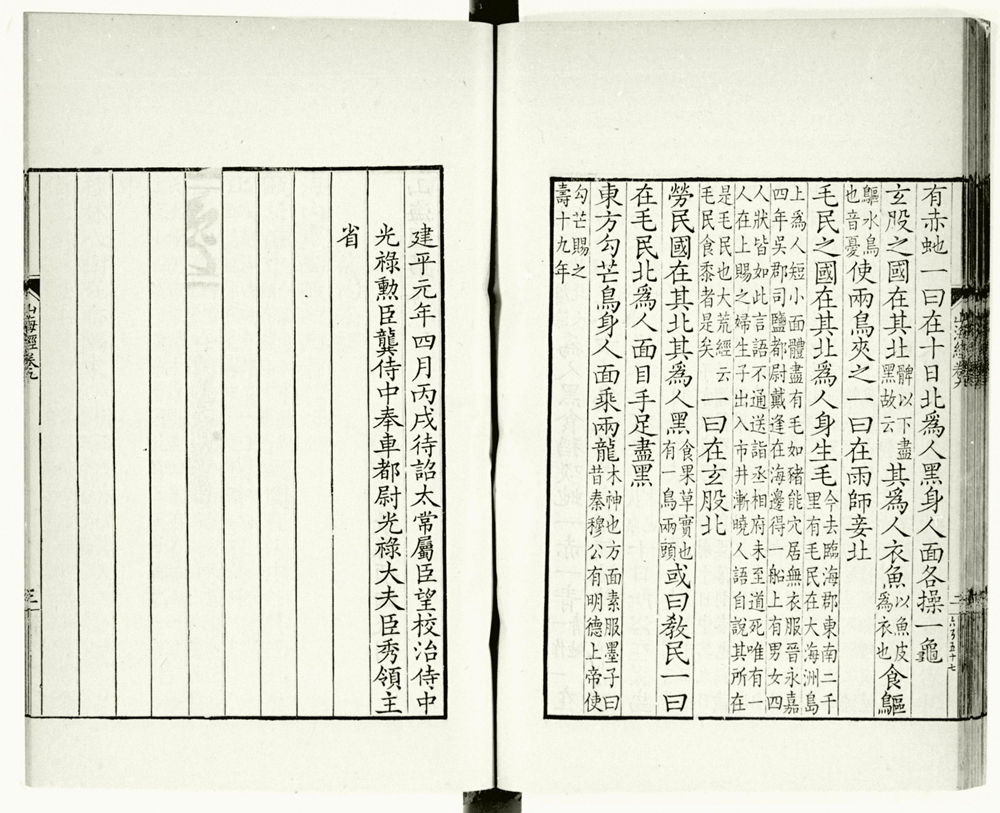 有赤虵一曰在十日北爲人黑身人面各操一龜
玄股之國在其北髀以下盡黑故云其爲人衣魚以魚皮爲衣也食鷗
鷗水鳥也音憂使兩鳥夾之一曰在雨師妾北
毛民之國在其北爲人身生毛今去臨海郡東南二千里有毛民在大海洲島
上爲人短小面體盡有毛如豬能穴居無衣服晉永嘉四年吳郡司鹽都尉戴逢在海邊得一船上有男女四
人狀皆如此言語不通送詣丞相府未至道死唯有一人在上賜之婦生子出入市井漸曉人語自說其所在
是毛民也大荒經云毛民食黍者是矣一曰在玄股北
勞民國在其北其爲人黑食果草實也有一鳥兩頭或曰敎民一曰
在毛民北爲人面目手足盡黑
東方勾芒鳥身人面乘兩龍木神也方面素服墨子曰昔秦穆公有明德上帝使
勾芒賜之壽十九年
建平元年四月丙戌待詔太常屬臣望校治侍中
光祿勳臣龔侍中奉車都尉光祿大夫臣秀領主
省
山海經卷九